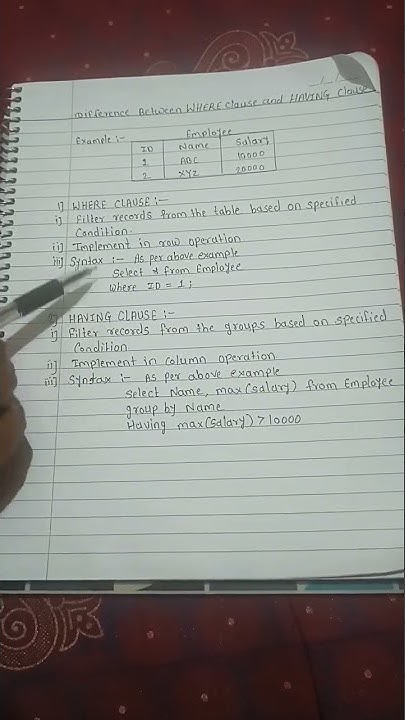 Difference Between WHERE Clause and HAVING Clause
Example :-
Employee
ID Name Salary
1 ABC 10000
2 XYZ 20000
1) WHERE CLAUSE :-
i) Filter records from the table based on specified
Condition.
ii) Implement in row operation
iii) Syntax :- As per above example
Select * from Employee
Where ID = 1;
2) HAVING CLAUSE :-
i) Filter records from the groups based on specified
Condition
ii) Implement in column operation
iii) Syntax :- As per above example
Select Name, max(salary) from Employee
group by Name
Having max(salary) > 10000